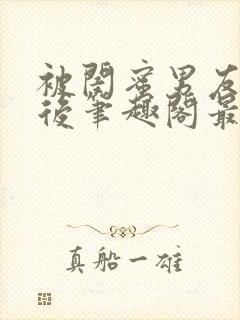 被閨蜜男友
後筆趣閣最
真船一雄